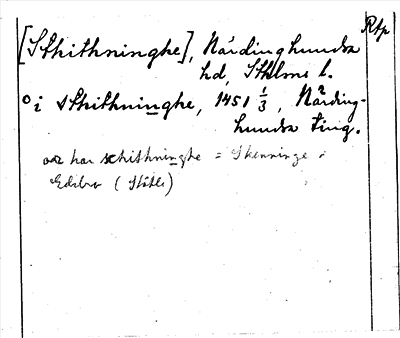 Rtp
[Sthithninghe], Närdinghundra
hd, Sthlms l.
° i sthithninghe, 1451 1/3, Närding-
hundra ting.
har schithninghe = Skenninge i
Edsbro (Ståhle)